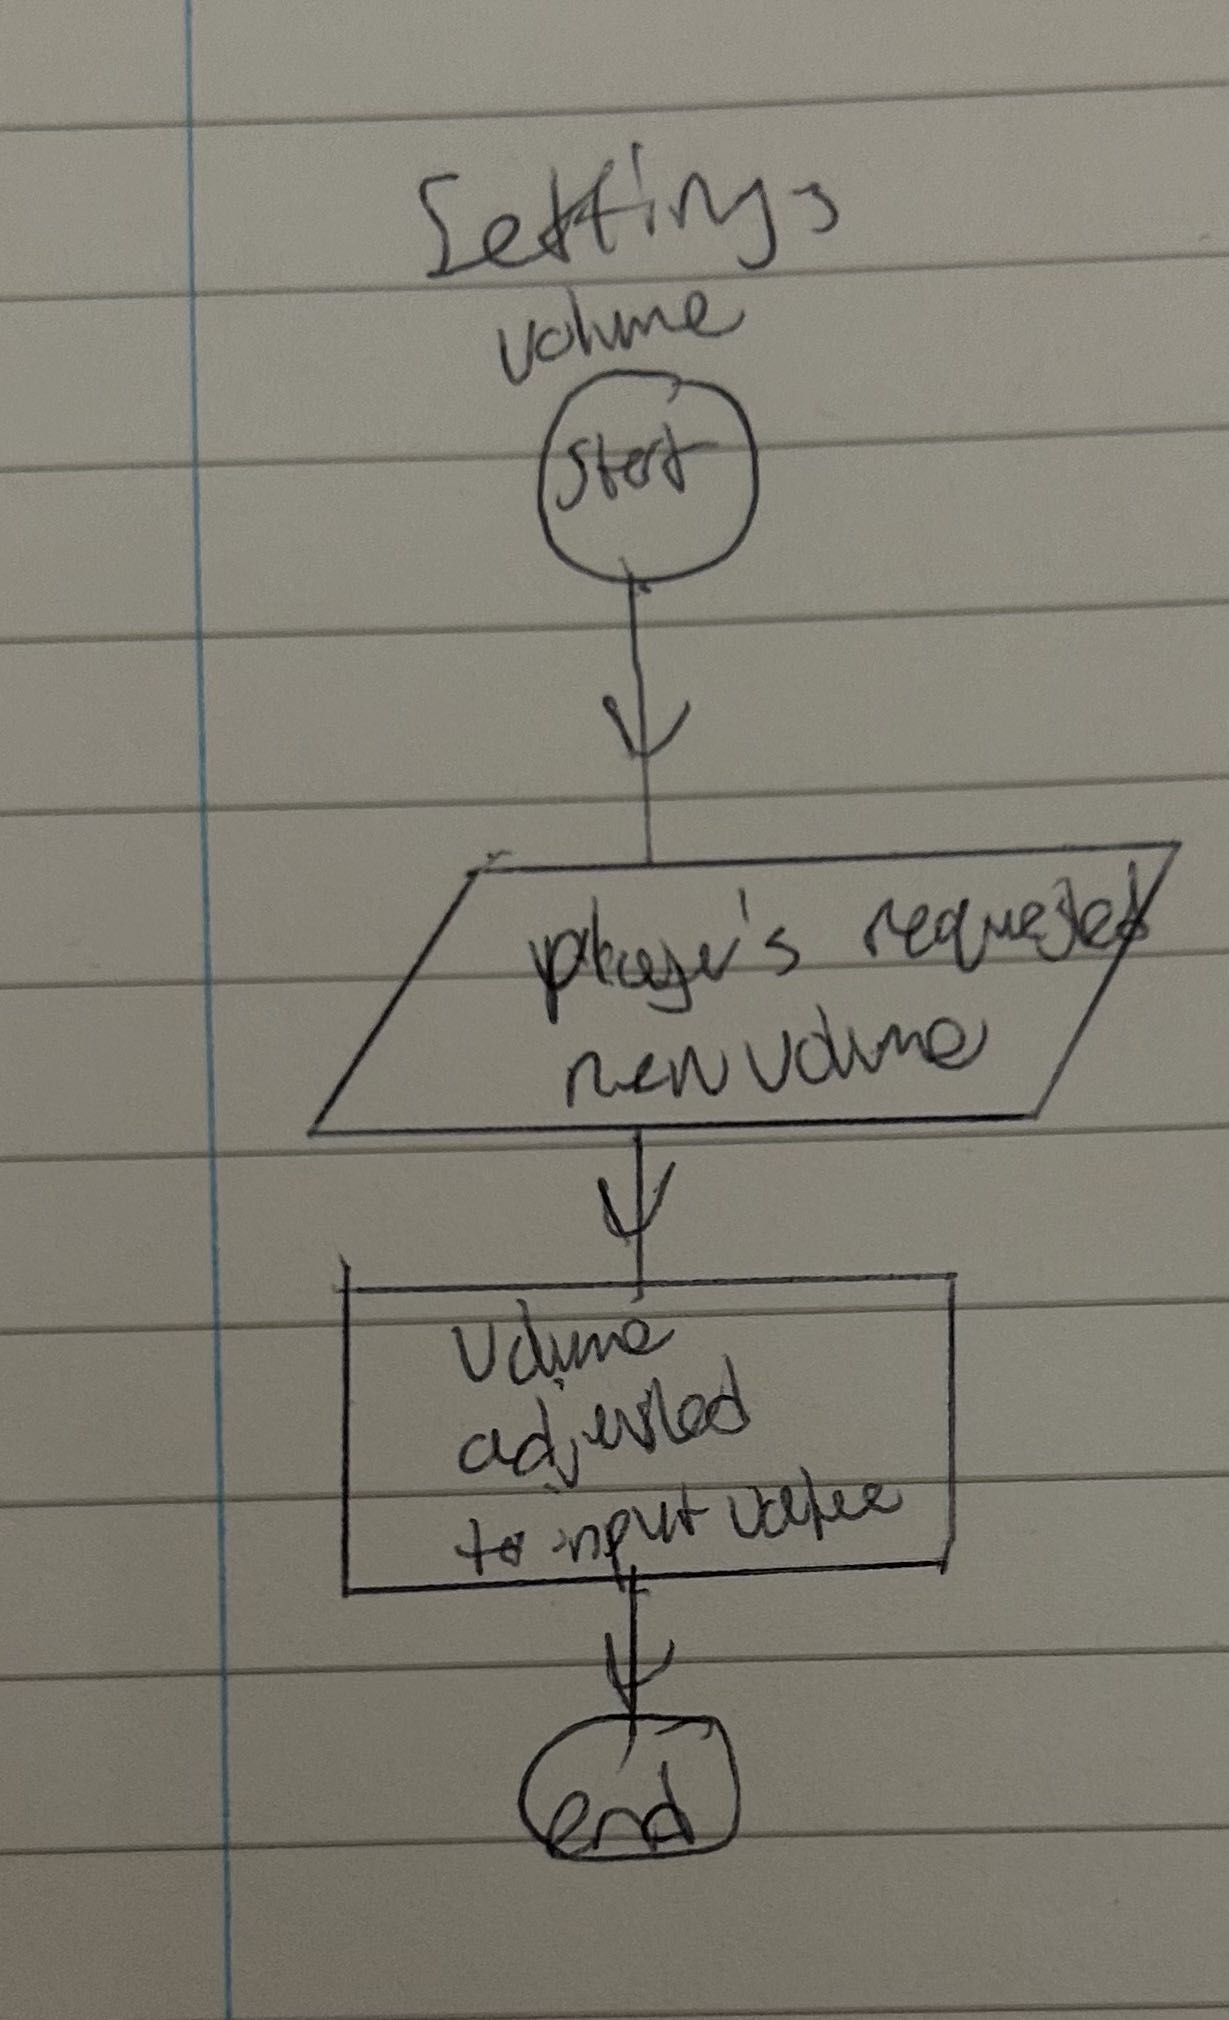 Settings
volume
start
player's requested
new volume
Volume
adjusted
to input value
end